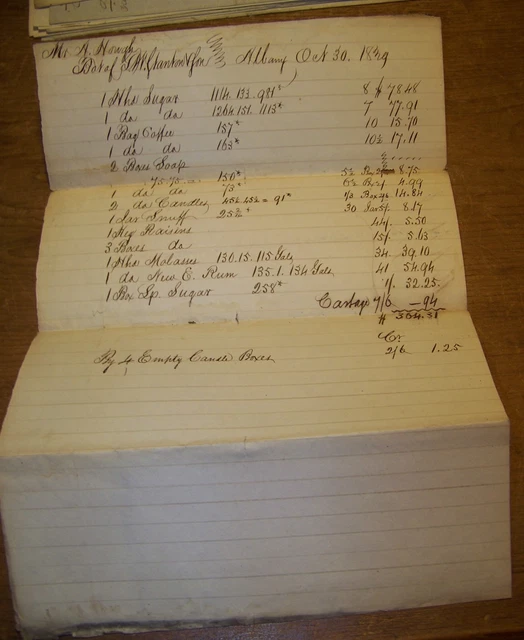 Mr. A. Hough
Bot of G. W. Stanton & Son Albany Oct 30. 1839
1 Hhd Sugar 1114.133.981# 8 $ 78.48
1 do do 1264.151.1113# 7 77.91
1 Bag Coffee 157# 10 15.70
1 do do 163# 10½ 17.11
2 Boxes Soap
75.75 = 150# 8.75
1 do do 73# 4.99
2 do Candles 45½ 45½ = 91# Box 14.81
1 Jar Snuff 30 8.17
1 Keg Raisins 44/ 5.50
3 Boxes do 15/ 5.63
1 Hhd Molasses 130.15.115 Gals 34 39.10
1 do New E. Rum 135.1.134 Gals 41 54.94
1 Box Lp. Sugar 258# 1/. 32.25
Cartage 7/6 94
$ 364.31
Cr.
By 4 Empty Candle Boxes 2/6 1.25